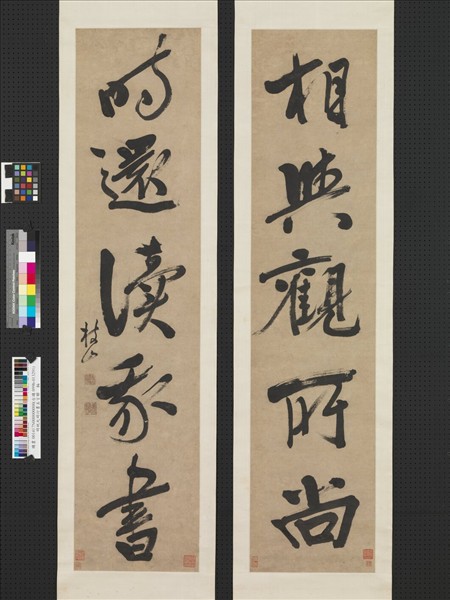 相與觀所尚
時還讀我書
枝山